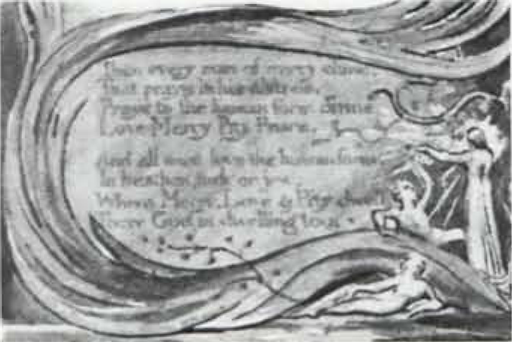 Then every man of every clime,
That prays in his distress,
Prays to the human form divine
Love Mercy Pity Peace.
And all must love the human form,
In heathen, turk or jew.
Where Mercy, Love & Pity dwell
There God is dwelling too